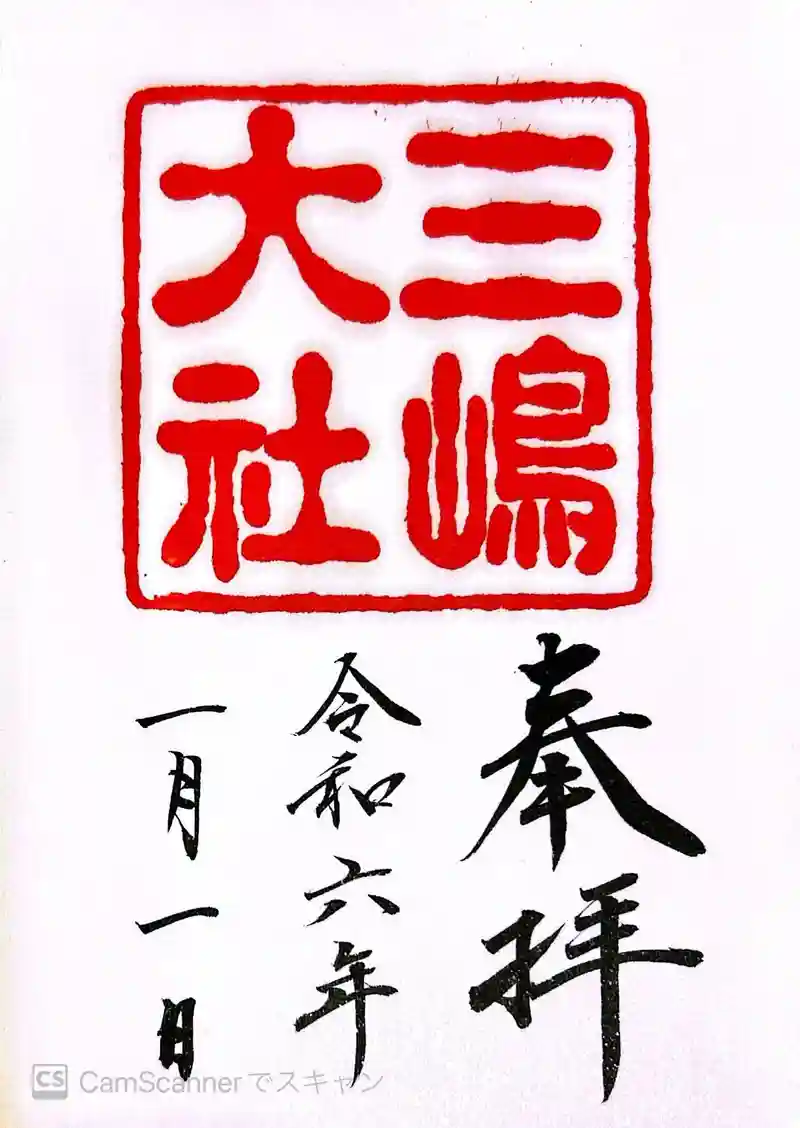 三嶋
大社
奉拝
令和六年
一月一日
CS CamScannerでスキャン